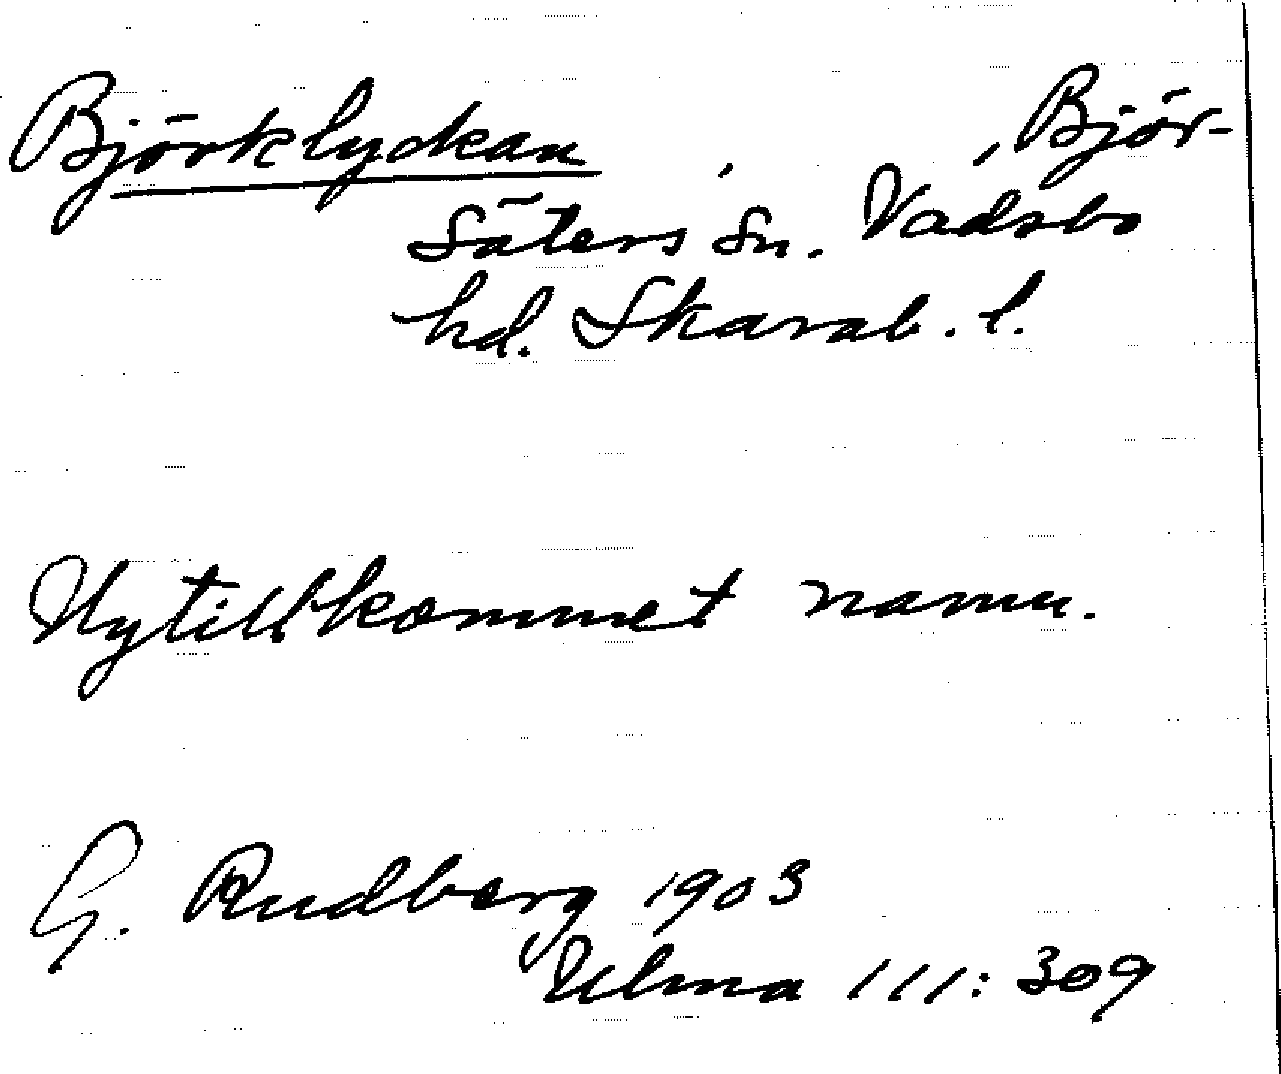 Björklyckan , , Björ-
säters sn. Vadsbo
hd. Skarab. l.
Nytillkommet namn.
G. Rudberg 1903
Ulma 111:309